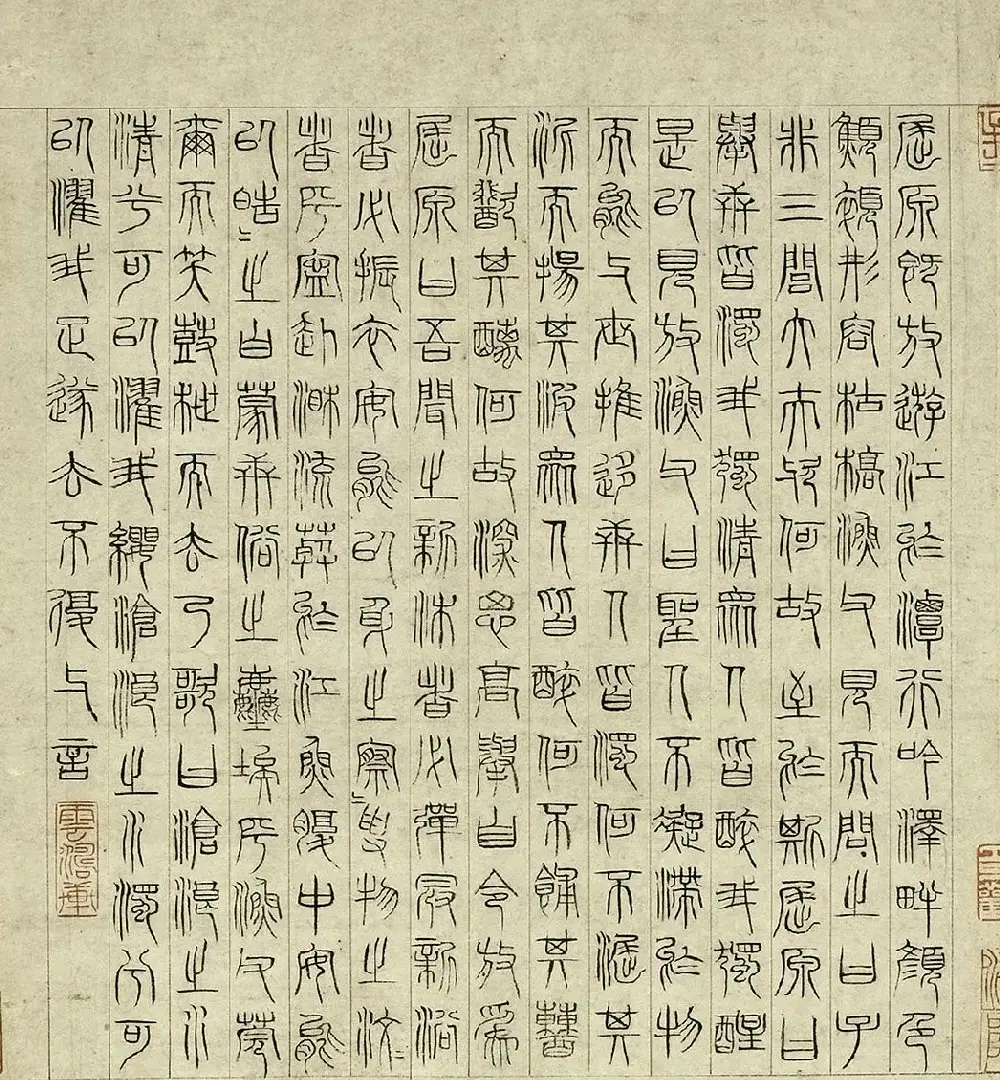 屈原既放遊江於潭行吟澤畔顏色
顦顇形容枯槁漁父見而問之曰子
非三閭大夫歟何故至於斯屈原曰
舉世皆濁我獨清衆人皆醉我獨醒
是以見放漁父曰聖人不凝滯於物
而能与世推移世人皆濁何不淈其
泥而揚其波衆人皆醉何不餔其糟
而歠其醨何故深思高舉自令放爲
屈原曰吾聞之新沐者必彈冠新浴
者必振衣安能以身之察〻受物之汶〻
者乎寧赴湘流葬於江魚腹中安能
以皓〻之白蒙世俗之塵埃乎漁父莞
爾而笑鼓枻而去乃歌曰滄浪之水
清兮可以濯我纓滄浪之水濁兮可
以濯我足遂去不復与言